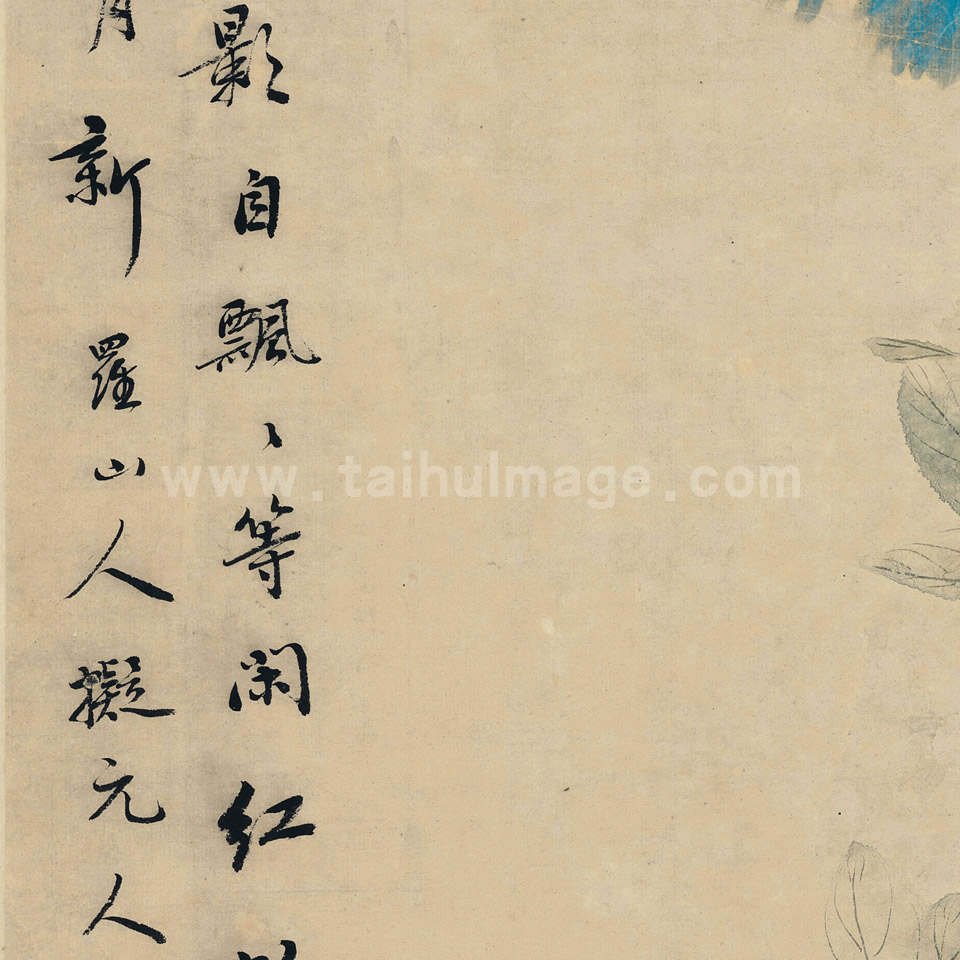 影自飄〻等閑红
月新羅山人擬元人
www.taihuImage.com